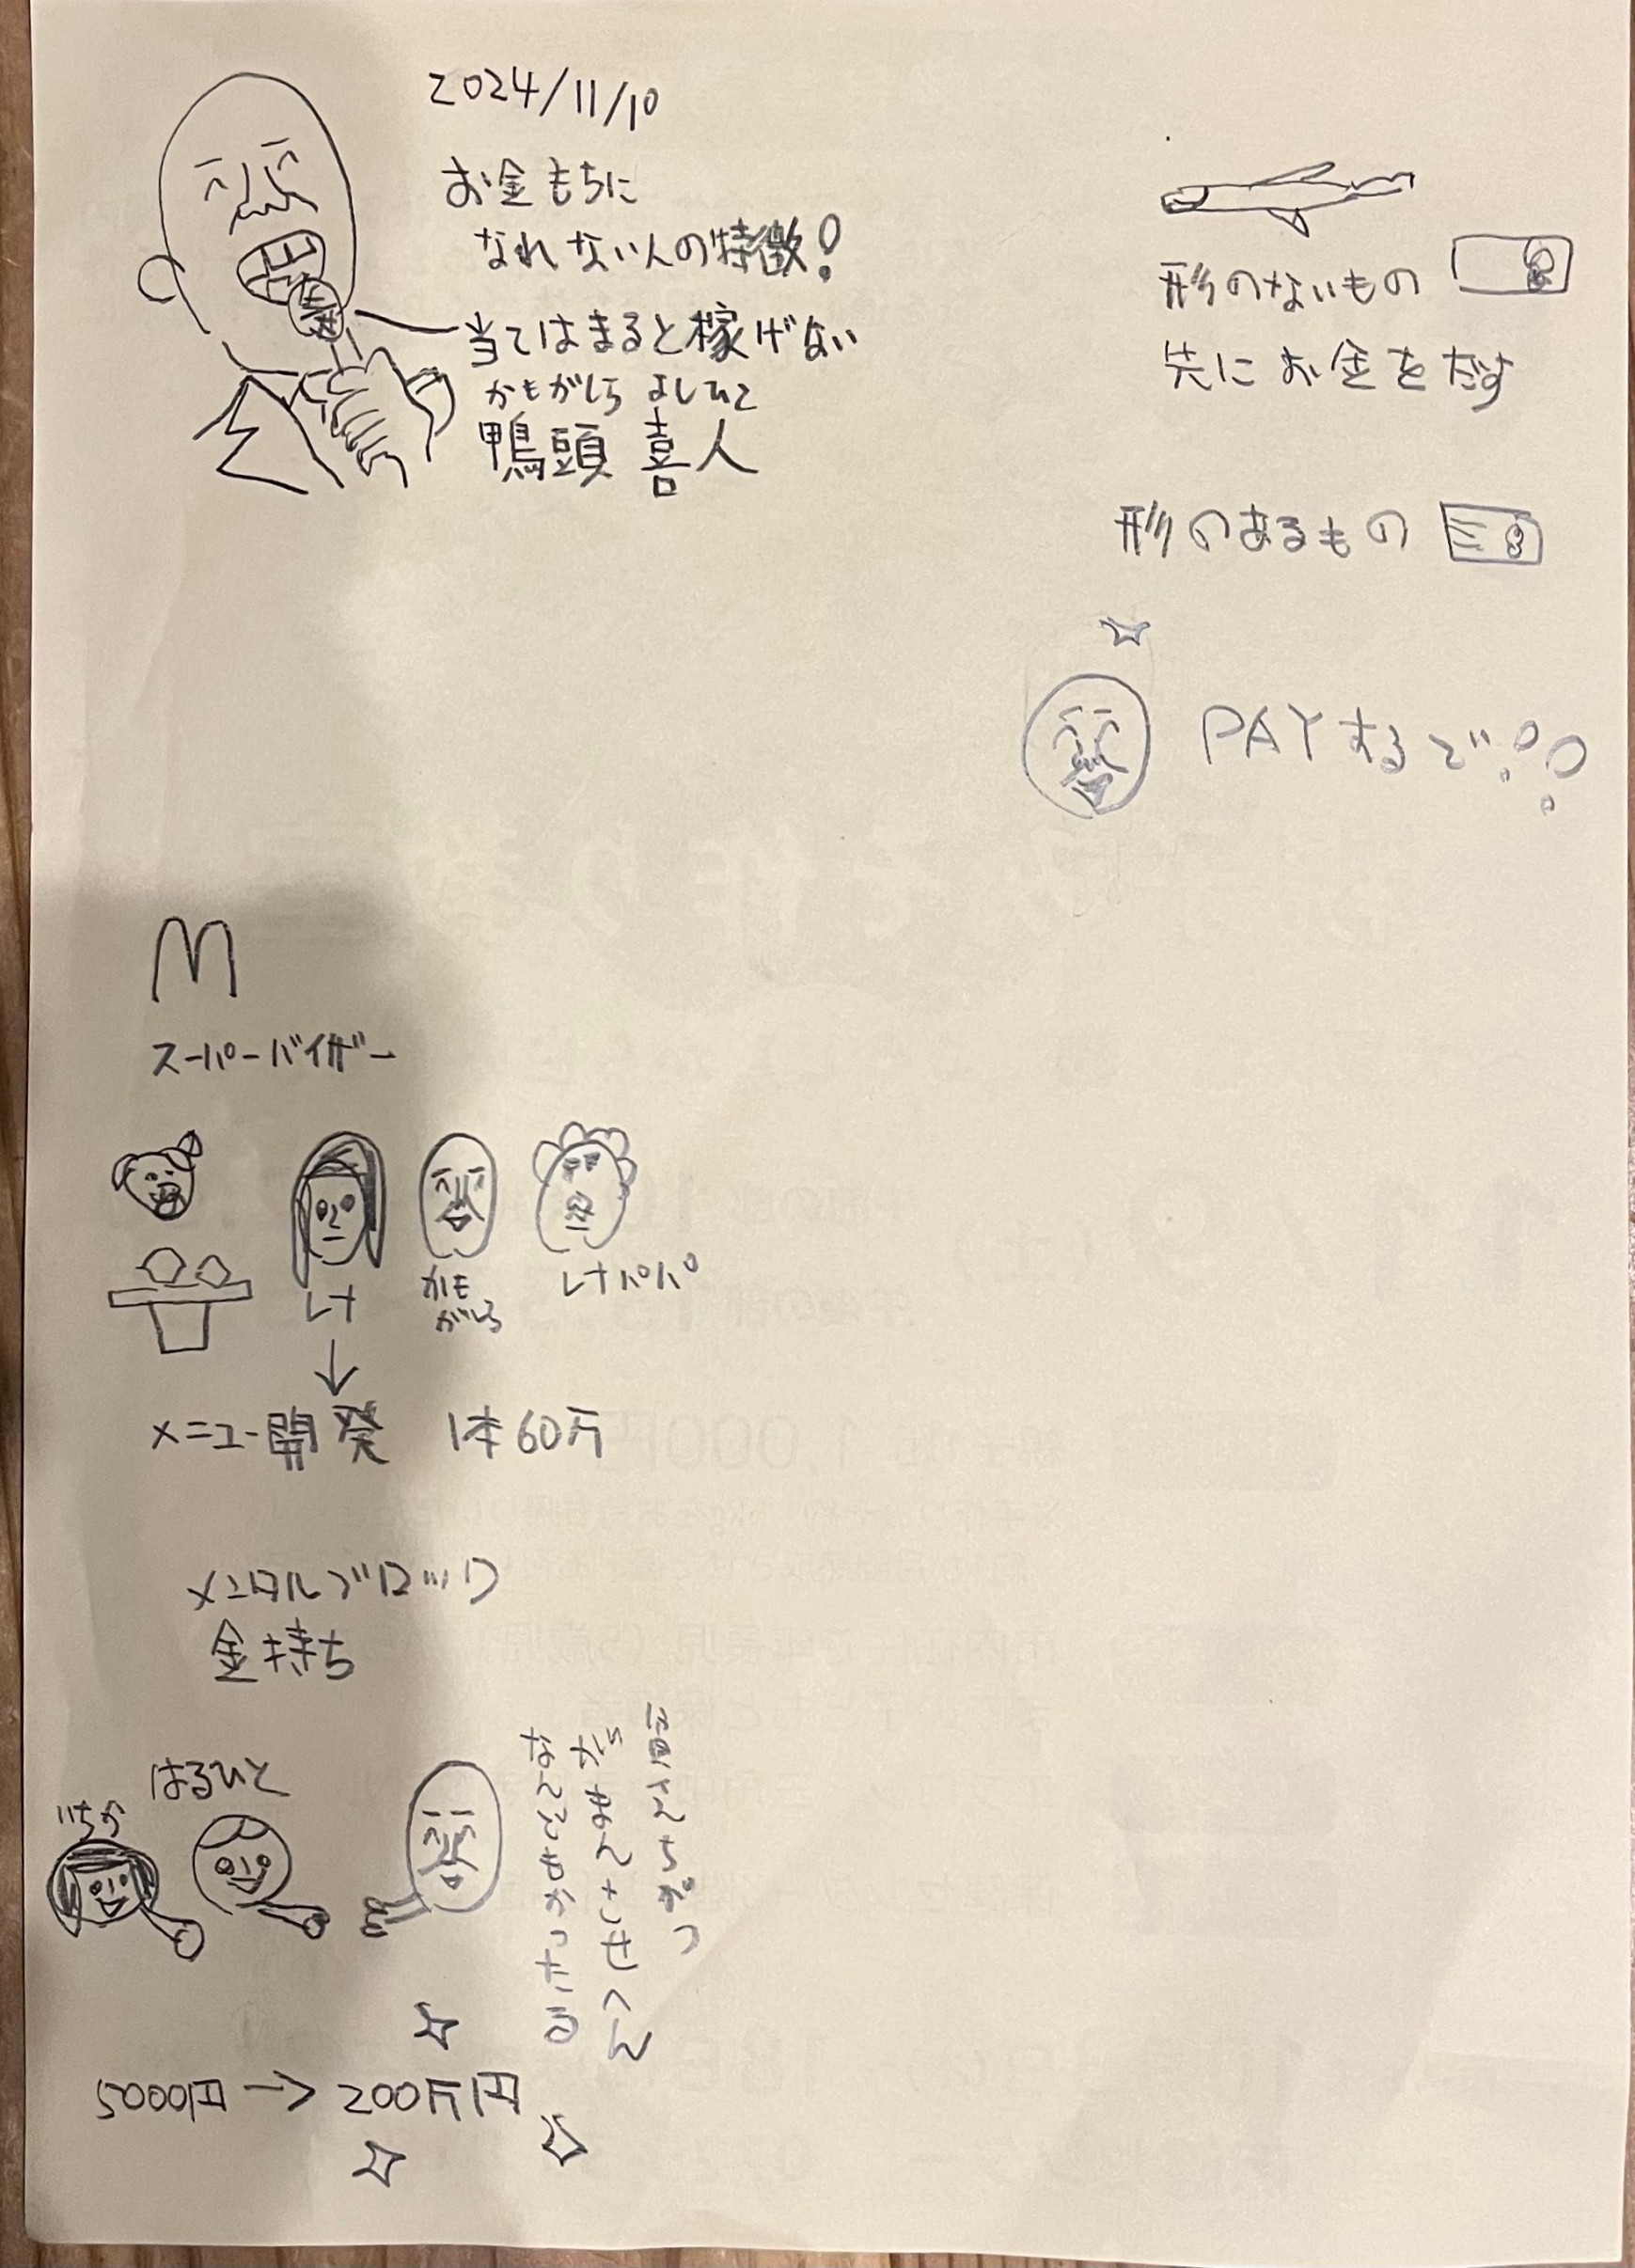 2024/11/10
お金もちに
なれない人の特徴!
当てはまると稼げない
かもがしら よしひと
鴨頭 喜人
形のないもの
先にお金をだす
形のあるもの
PAYするで!!
M
スーパーバイザー
レナ
かも
がしら
レナパパ
メニュー開発 1本60万
メンタルブロック
金持ち
はるひと
いちか
がまんさせへん
なんどもかったる
5000円→200万円